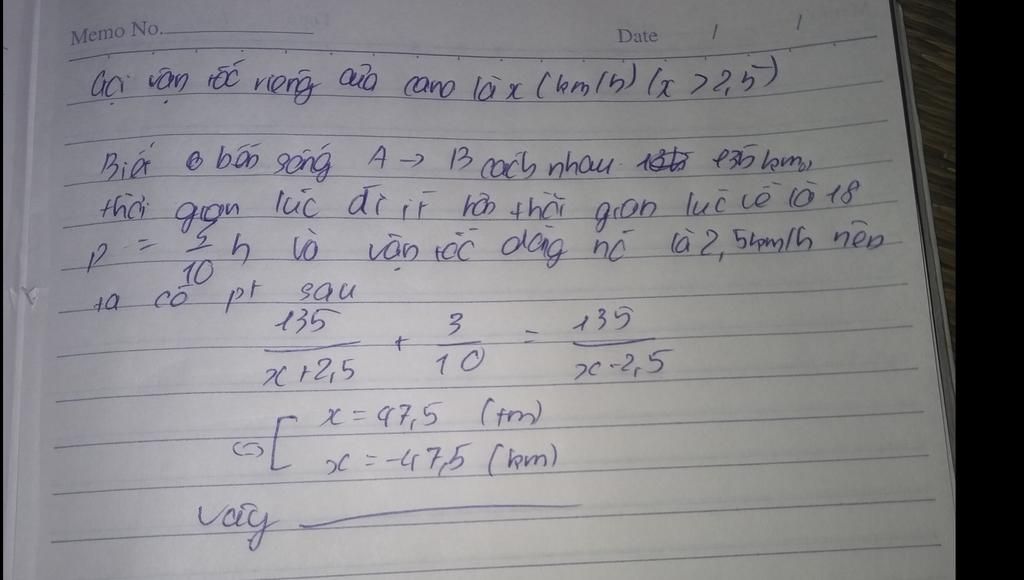 Memo No. Date / /
Gọi vận tốc riêng của cano là x (km/h) (x > 2,5)
Biết bến sông A → B cách nhau 135 km,
thời gian lúc đi ít hơn thời gian lúc về là 18
p = 3/10 h là vận tốc dòng nc là 2,5km/h nên
ta có pt sau
135/(x+2,5) + 3/10 = 135/(x-2,5)
⇔ [ x = 47,5 (tm)
x = -47,5 (km)
Vậy